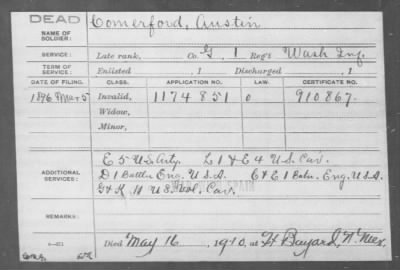 DEAD
Comerford, Austin
NAME OF SOLDIER:
SERVICE: Late rank, Co. G, 1 Reg't Wash Inf.
TERM OF SERVICE: Enlisted , 1 Discharged , 1
DATE OF FILING. CLASS. APPLICATION NO. LAW. CERTIFICATE NO.
1896 Mar 5 Invalid, 1174851 0 910867.
Widow,
Minor,
E 5 U.S. Arty. L 1 & E 4 U.S. Cav.
ADDITIONAL SERVICES: D 1 Battln Eng. U.S.A. C & E 1 Batn. Eng. U.S.A.
G & K 11 U.S. Vol. Cav. SPAIN
REMARKS:
Died May 16, 1910, at Ft Bayard, N. Mex.